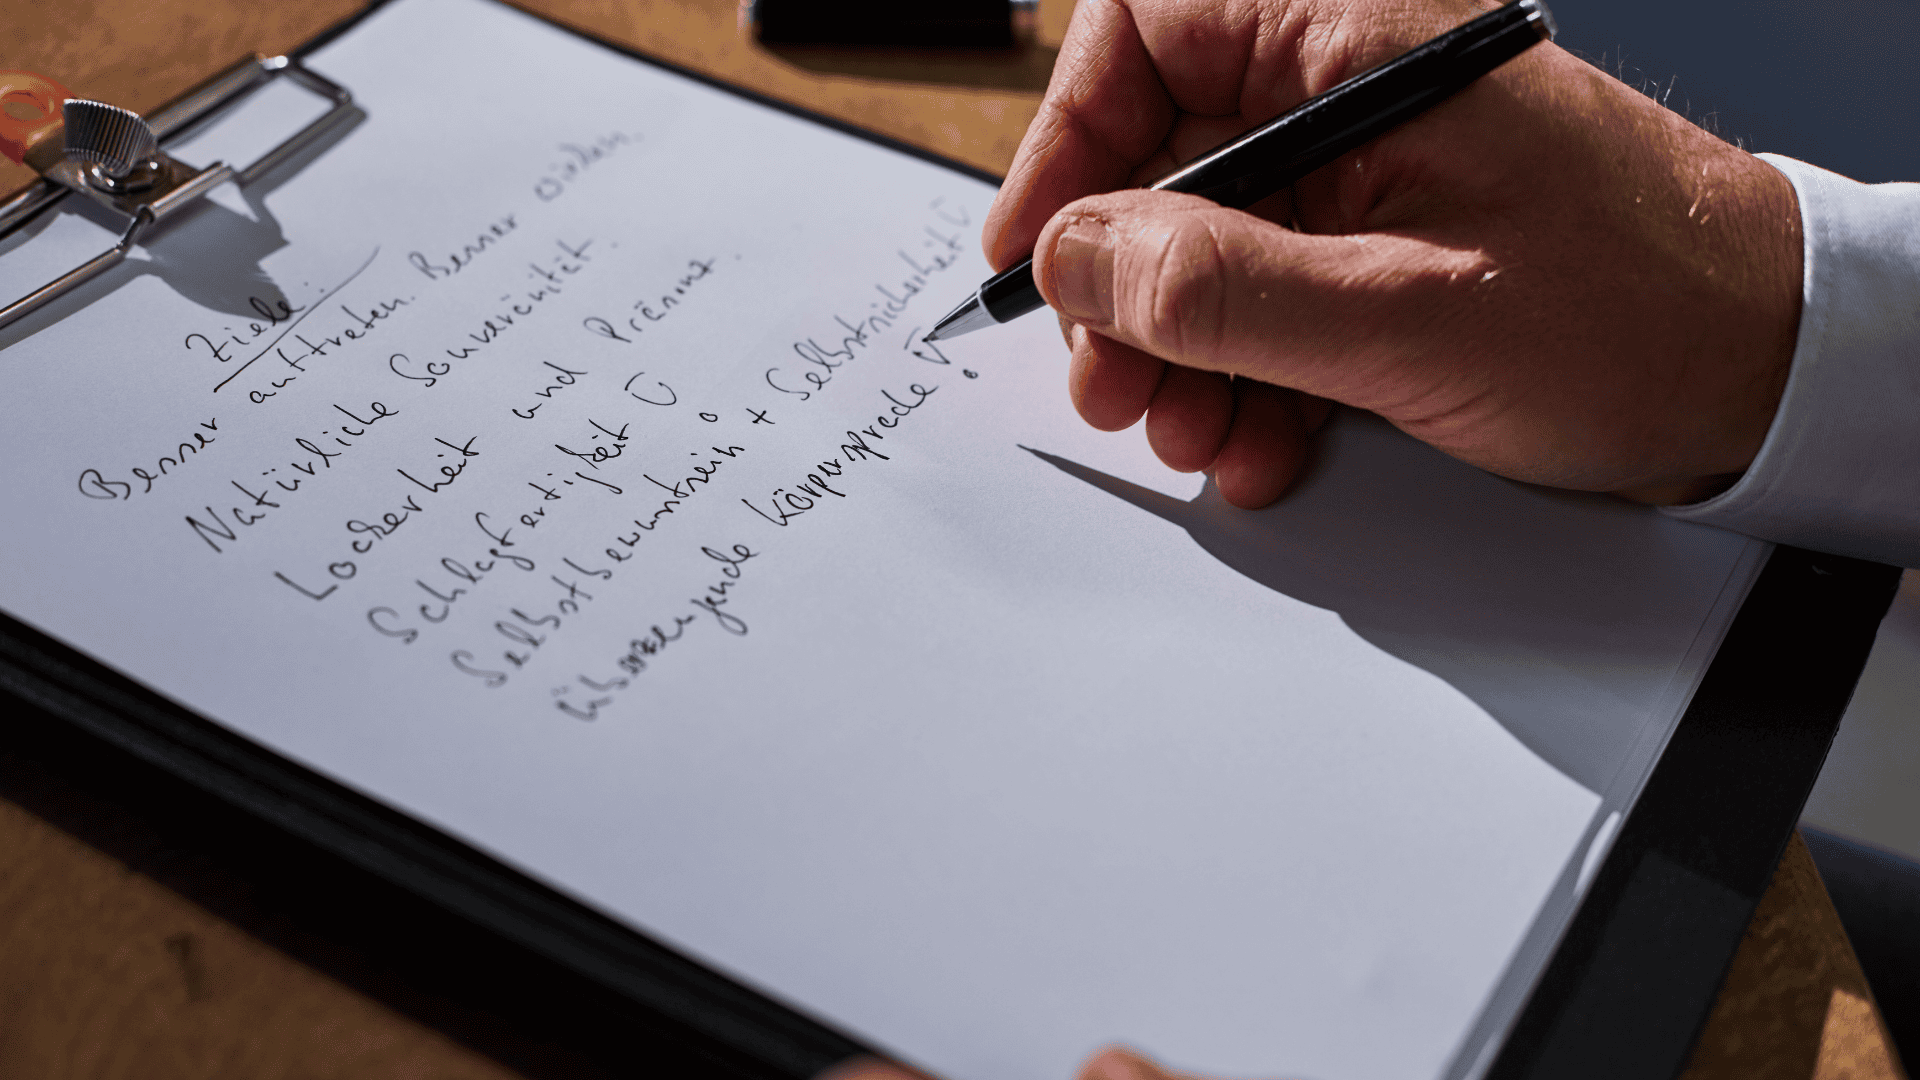 Ziele:
Besser auftreten. Besser wirken.
Natürliche Souveränität.
Lockerheit und Präsenz.
Schlagfertigkeit !
Selbstbewusstsein + Selbstsicherheit !
überzeugende Körpersprache !